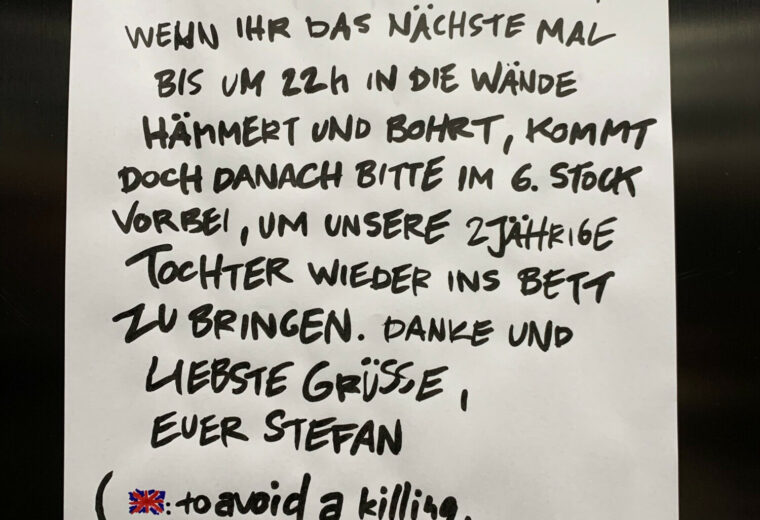 WENN IHR DAS NÄCHSTE MAL
BIS UM 22h IN DIE WÄNDE
HÄMMERT UND BOHRT, KOMMT
DOCH DANACH BITTE IM 6. STOCK
VORBEI, UM UNSERE 2JÄHRIGE
TOCHTER WIEDER INS BETT
ZU BRINGEN. DANKE UND
LIEBSTE GRÜSSE,
EUER STEFAN
( 🇬🇧: to avoid a killing.